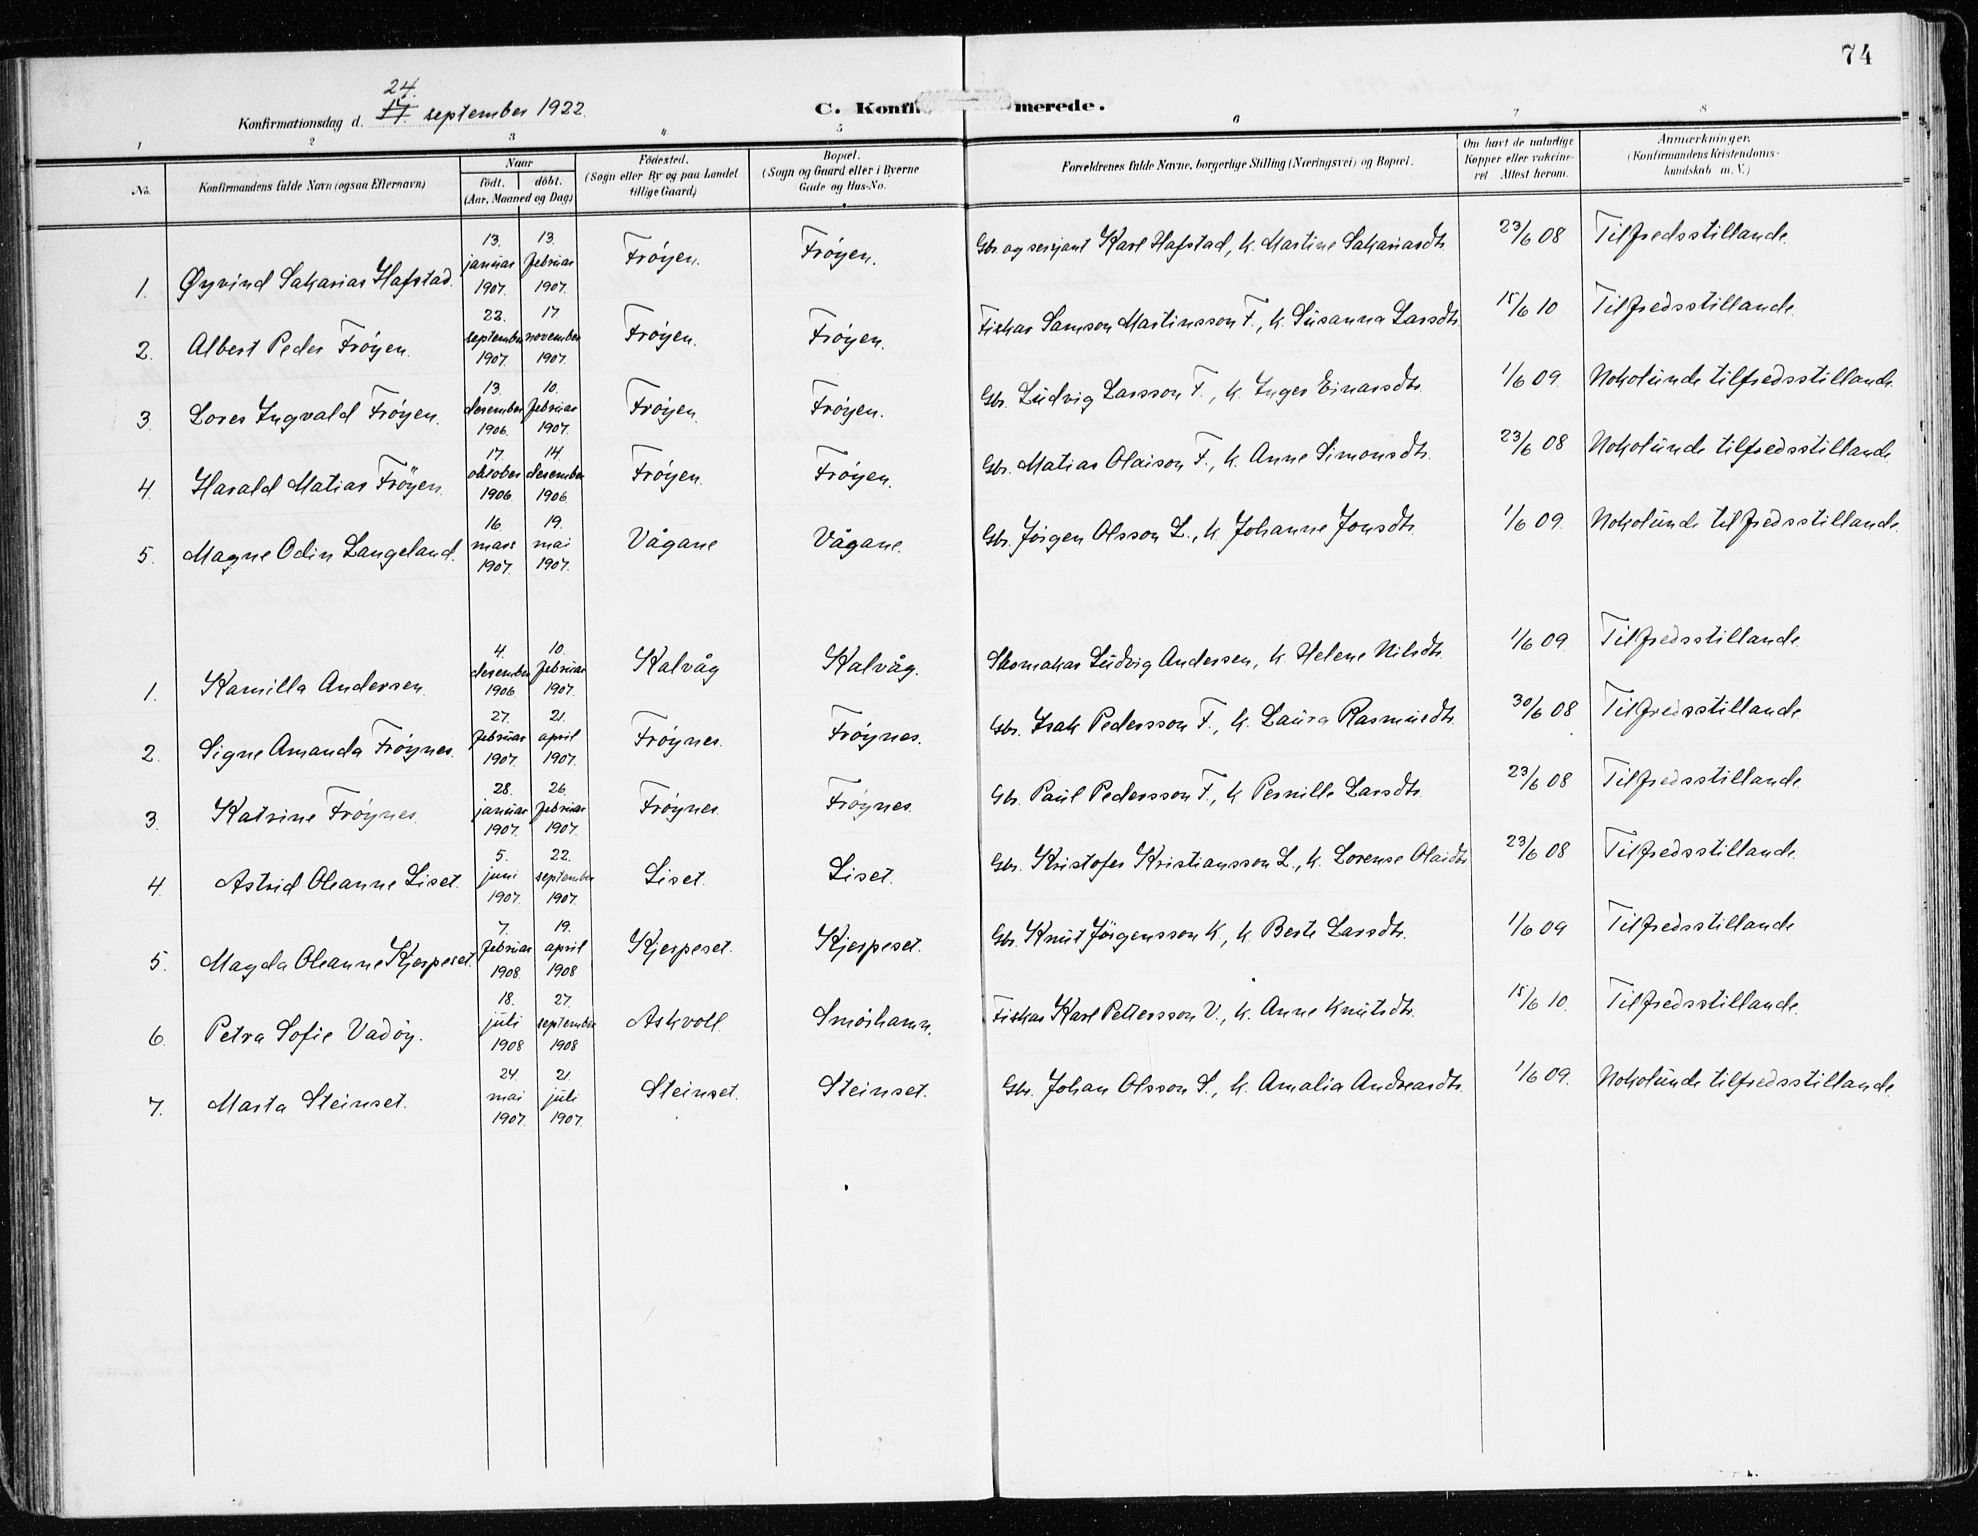 74
24.
Konfirmationsdag d. 17. september 1922.
C. Konfirmerede.
1 2 3 4 5 6 7 8
No. Konfirmandens fulde Navn (ogsaa Efternavn) Naar födt. döbt. (Aar, Maaned og Dag) Födested. (Sogn eller By og paa Landet tillige Gaard) Bopæl. (Sogn og Gaard eller i Byerne Gade og Hus-No. Forældrenes fulde Navne, borgerlige Stilling (Næringsvei) og Bopæl. Om havt de naturlige Kopper eller vakcineret. Attest herom. Anmærkninger. (Konfirmandens Kristendomskundskab m. V.)
1. Øyvind Sakarias Hafstad. 13. januar 1907. 13. februar 1907. Frøyen. Frøyen. Gbr. og sersjant Karl Hafstad, k. Martine Sakariasdtr. 23/6 08 Tilfredsstillande.
2. Albert Peder Frøyen. 23. september 1907. 17. november 1907. Frøyen. Frøyen. Fiskar Samson Martinsson F., k. Susanna Larsdtr. 15/6 10 Tilfredsstillande.
3. Lores Ingvald Frøyen. 13. desember 1906. 10. februar 1907. Frøyen. Frøyen. Gbr. Ludvig Larsson F., k. Inger Einarsdtr. 1/6 09. Nokolunde tilfredsstillande.
4. Harald Matias Frøyen. 17. oktober 1906. 14. desember 1906. Frøyen. Frøyen. Gbr. Matias Olaison F., k. Anne Simonsdtr. 23/6 08 Nokolunde tilfredsstillande.
5. Magne Odin Langeland. 16. mars 1907. 19. mai 1907. Vågane Vågane. Gbr. Jørgen Olsson L., k. Johanne Jonsdtr. 1/6 09. Nokolunde tilfredsstillande.
1. Kamilla Andersen. 4. desember 1906 10. februar 1907. Kalvåg Kalvåg. Skomakar Ludvig Andersen, k. Helene Nilsdtr. 1/6 09. Tilfredsstillande.
2. Signe Amanda Frøynes. 27. februar 1907. 21. april 1907. Frøynes. Frøynes. Gbr. Isak Pedersson F., k. Laura Rasmusdtr. 30/6 08 Tilfredsstillande
3. Katrine Frøynes. 28. januar 1907. 26. februar 1907. Frøynes. Frøynes. Gbr. Paul Pedersson F., k. Pernille Larsdtr. 23/6 08 Tilfredsstillande.
4. Astrid Oleanne Liset. 5. juni 1907. 22. september 1907. Liset. Liset. Gbr. Kristofer Kristiansson L., k. Lorense Olaidtr. 23/6 08 Tilfredsstillande.
5. Magda Oleanne Kjerpeset. 7. februar 1908. 19. april 1908 Kjerpeset. Kjerpeset. Gbr. Knut Jørgensson K., k. Berte Larsdtr. 1/6 09 Tilfredsstillande
6. Petra Sofie Vadøy. 18. juli 1908 27. september 1908 Askvoll. Smørhamn. Fiskar Karl Pettersson V., k. Anne Knutsdtr. 15/6 10. Tilfredsstillande.
7. Marta Steinset. 24. mai 1907. 21. juli 1907. Steinset. Steinset. Gbr. Johan Olsson S., k. Amalia Andreasdtr. 1/6 09. Nokolunde tilfredsstillande.